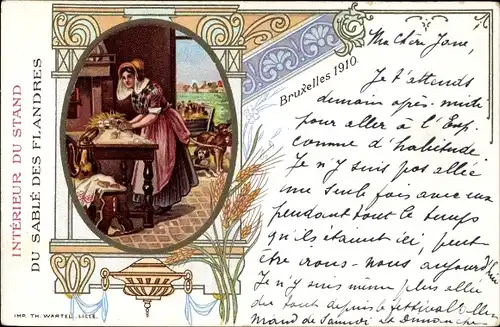 INTÉRIEUR DU STAND
DU SABLÉ DES FLANDRES
Bruxelles 1910.
IMP. TH. WARTEL, LILLE.
Ma Chère Jane,
Je t'attends
demain après-midi
pour aller à l'Exp.
comme d'habitude
Je n'y suis pas allée
une seule fois avec eux
pendant tout le temps
qu'ils étaient ici, peut
être irons-nous aujourd'hui
Je n'y suis même plus allée
du tout depuis festival
mand de Samedi et Dimanche